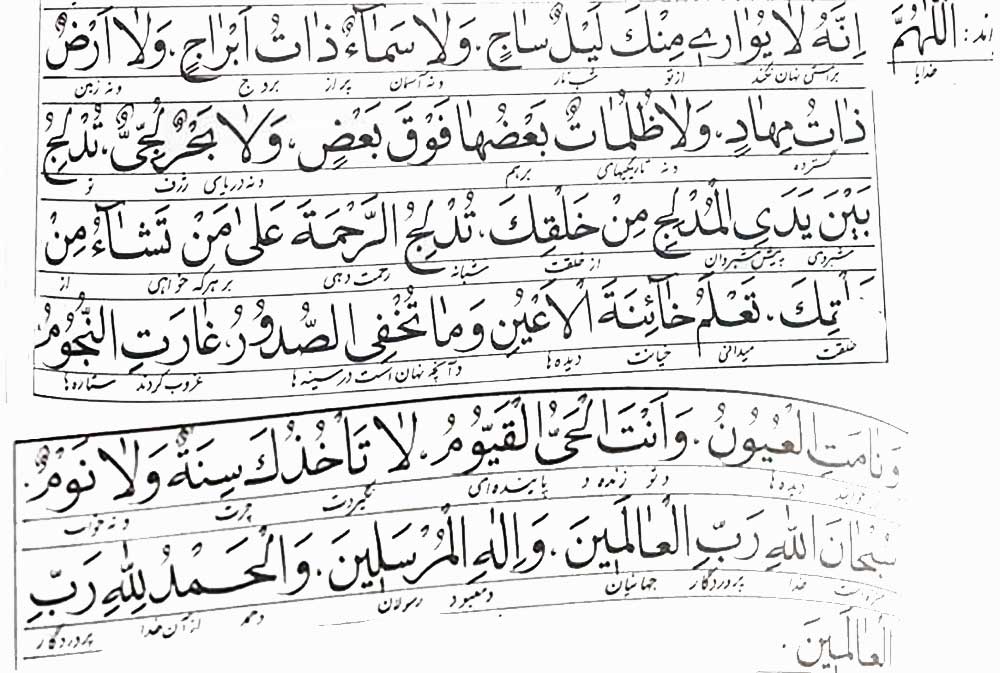 اند: اَللّٰهُمَّ
خدایا
اِنَّهُ لٰا يُوٰارِي مِنْكَ لَيْلٌ سٰاجٍ. وَلٰا سَمٰاءٌ ذٰاتُ اَبْرٰاجٍ. وَلٰا اَرْضٌ
براستی نهان نکند از تو شب تار و نه آسمان پر از برج و نه زمین
ذٰاتُ مِهٰادٍ. وَلٰا ظُلُمٰاتٌ بَعْضُهٰا فَوْقَ بَعْضٍ. وَلٰا بَحْرٌ لُجِّيٌّ. تُدْلِجُ
گسترده و نه تاریکیهای برهم و نه دریای ژرف تو
بَيْنَ يَدَيِ الْمُدْلِجِ مِنْ خَلْقِكَ. تُدْلِجُ الرَّحْمَةَ عَلىٰ مَنْ تَشٰاءُ مِنْ
شبروی پیش شبروان از خلقت شبانه رحمت دهی بر هر که خواهی از
تَعْلَمُ خٰائِنَةَ الْاَعْيُنِ وَمٰا تُخْفِي الصُّدُورُ. غٰارَتِ النُّجُومُ
خلقت میدانی خیانت دیده ها و آنچه نهان است در سینه ها غروب کردند ستاره ها
وَنٰامَتِ الْعُيُونُ. وَاَنْتَ الْحَيُّ الْقَيُّومُ. لٰا تَأْخُذُكَ سِنَةٌ وَلٰا نَوْمٌ.
دیده ها و تو زنده و پاینده ای نگیردت چرت و نه خواب
سُبْحٰانَ اللّٰهِ رَبِّ الْعٰالَمِينَ. وَاِلٰهِ الْمُرْسَلِينَ. وَالْحَمْدُ لِلّٰهِ رَبِّ
خدا پروردگار جهانیان و معبود رسولان و حمد از آن خدا پروردگار
الْعٰالَمِينَ.